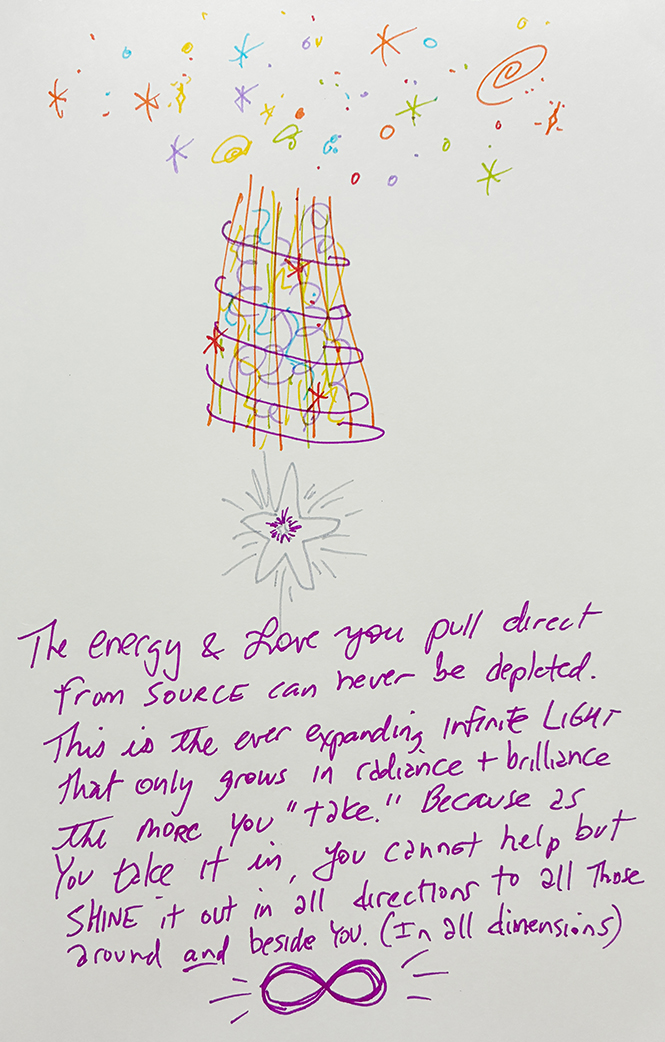 The energy & Love you pull direct
from SOURCE can never be depleted.
This is the ever expanding infinite LIGHT
that only grows in radiance + brilliance
the more you "take." Because as
You take it in, you cannot help but
SHINE it out in all directions to all Those
around and beside You. (In all dimensions)